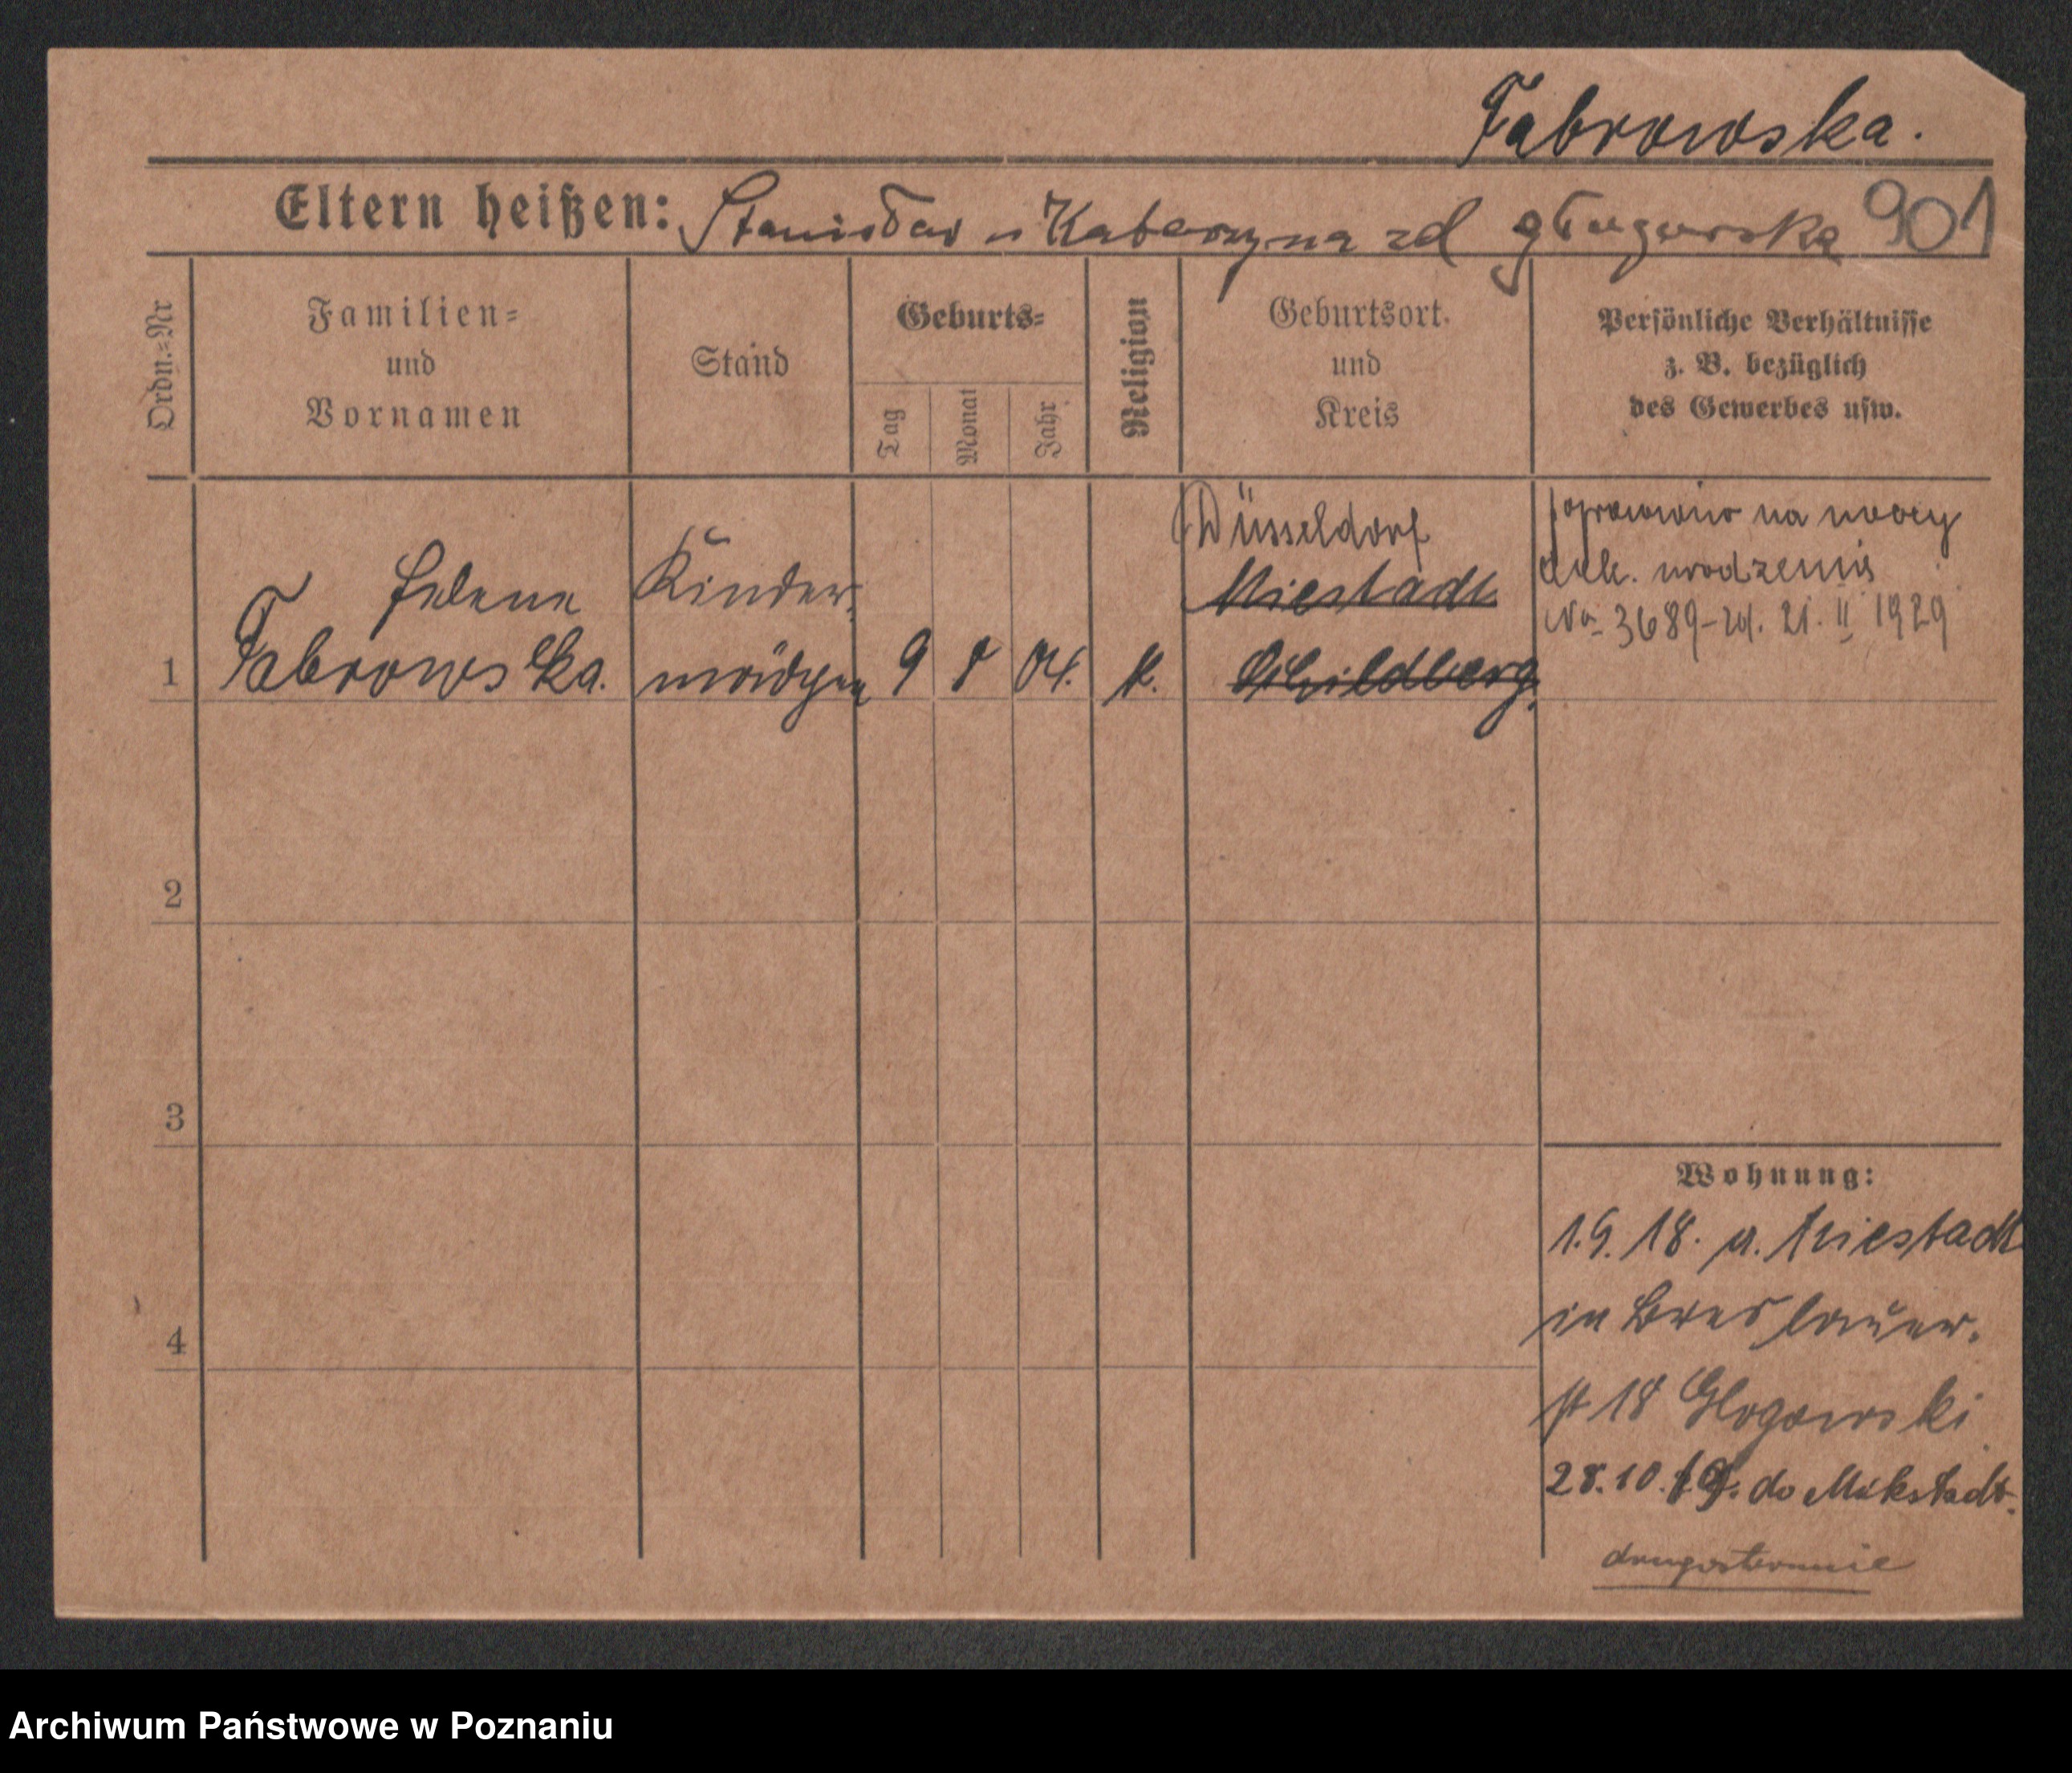 Fabrowska.
Eltern heißen: Stanisław u Katarzyna zd 901
Ordn.-Nr
Familien-
und
Vornamen
Stand
Geburts-
Tag
Monat
Jahr
Religion
Geburtsort
und
Kreis
Persönliche Verhältnisse
z. B. bezüglich
des Gewerbes usw.
1
Helene
Fabrowska.
Kinder-
mädchen
9 8 04. k.
Düsseldorf
Mixstadt
Schildberg.
poprawiono na mocy
dok. urodzenia
No 3689 - zd. 21. II 1929
2
3
4
Wohnung:
1.9.18. a. Mixstadt
in Breslauer-
st 18 Glogowski
28.10.19. do Mikstadt.